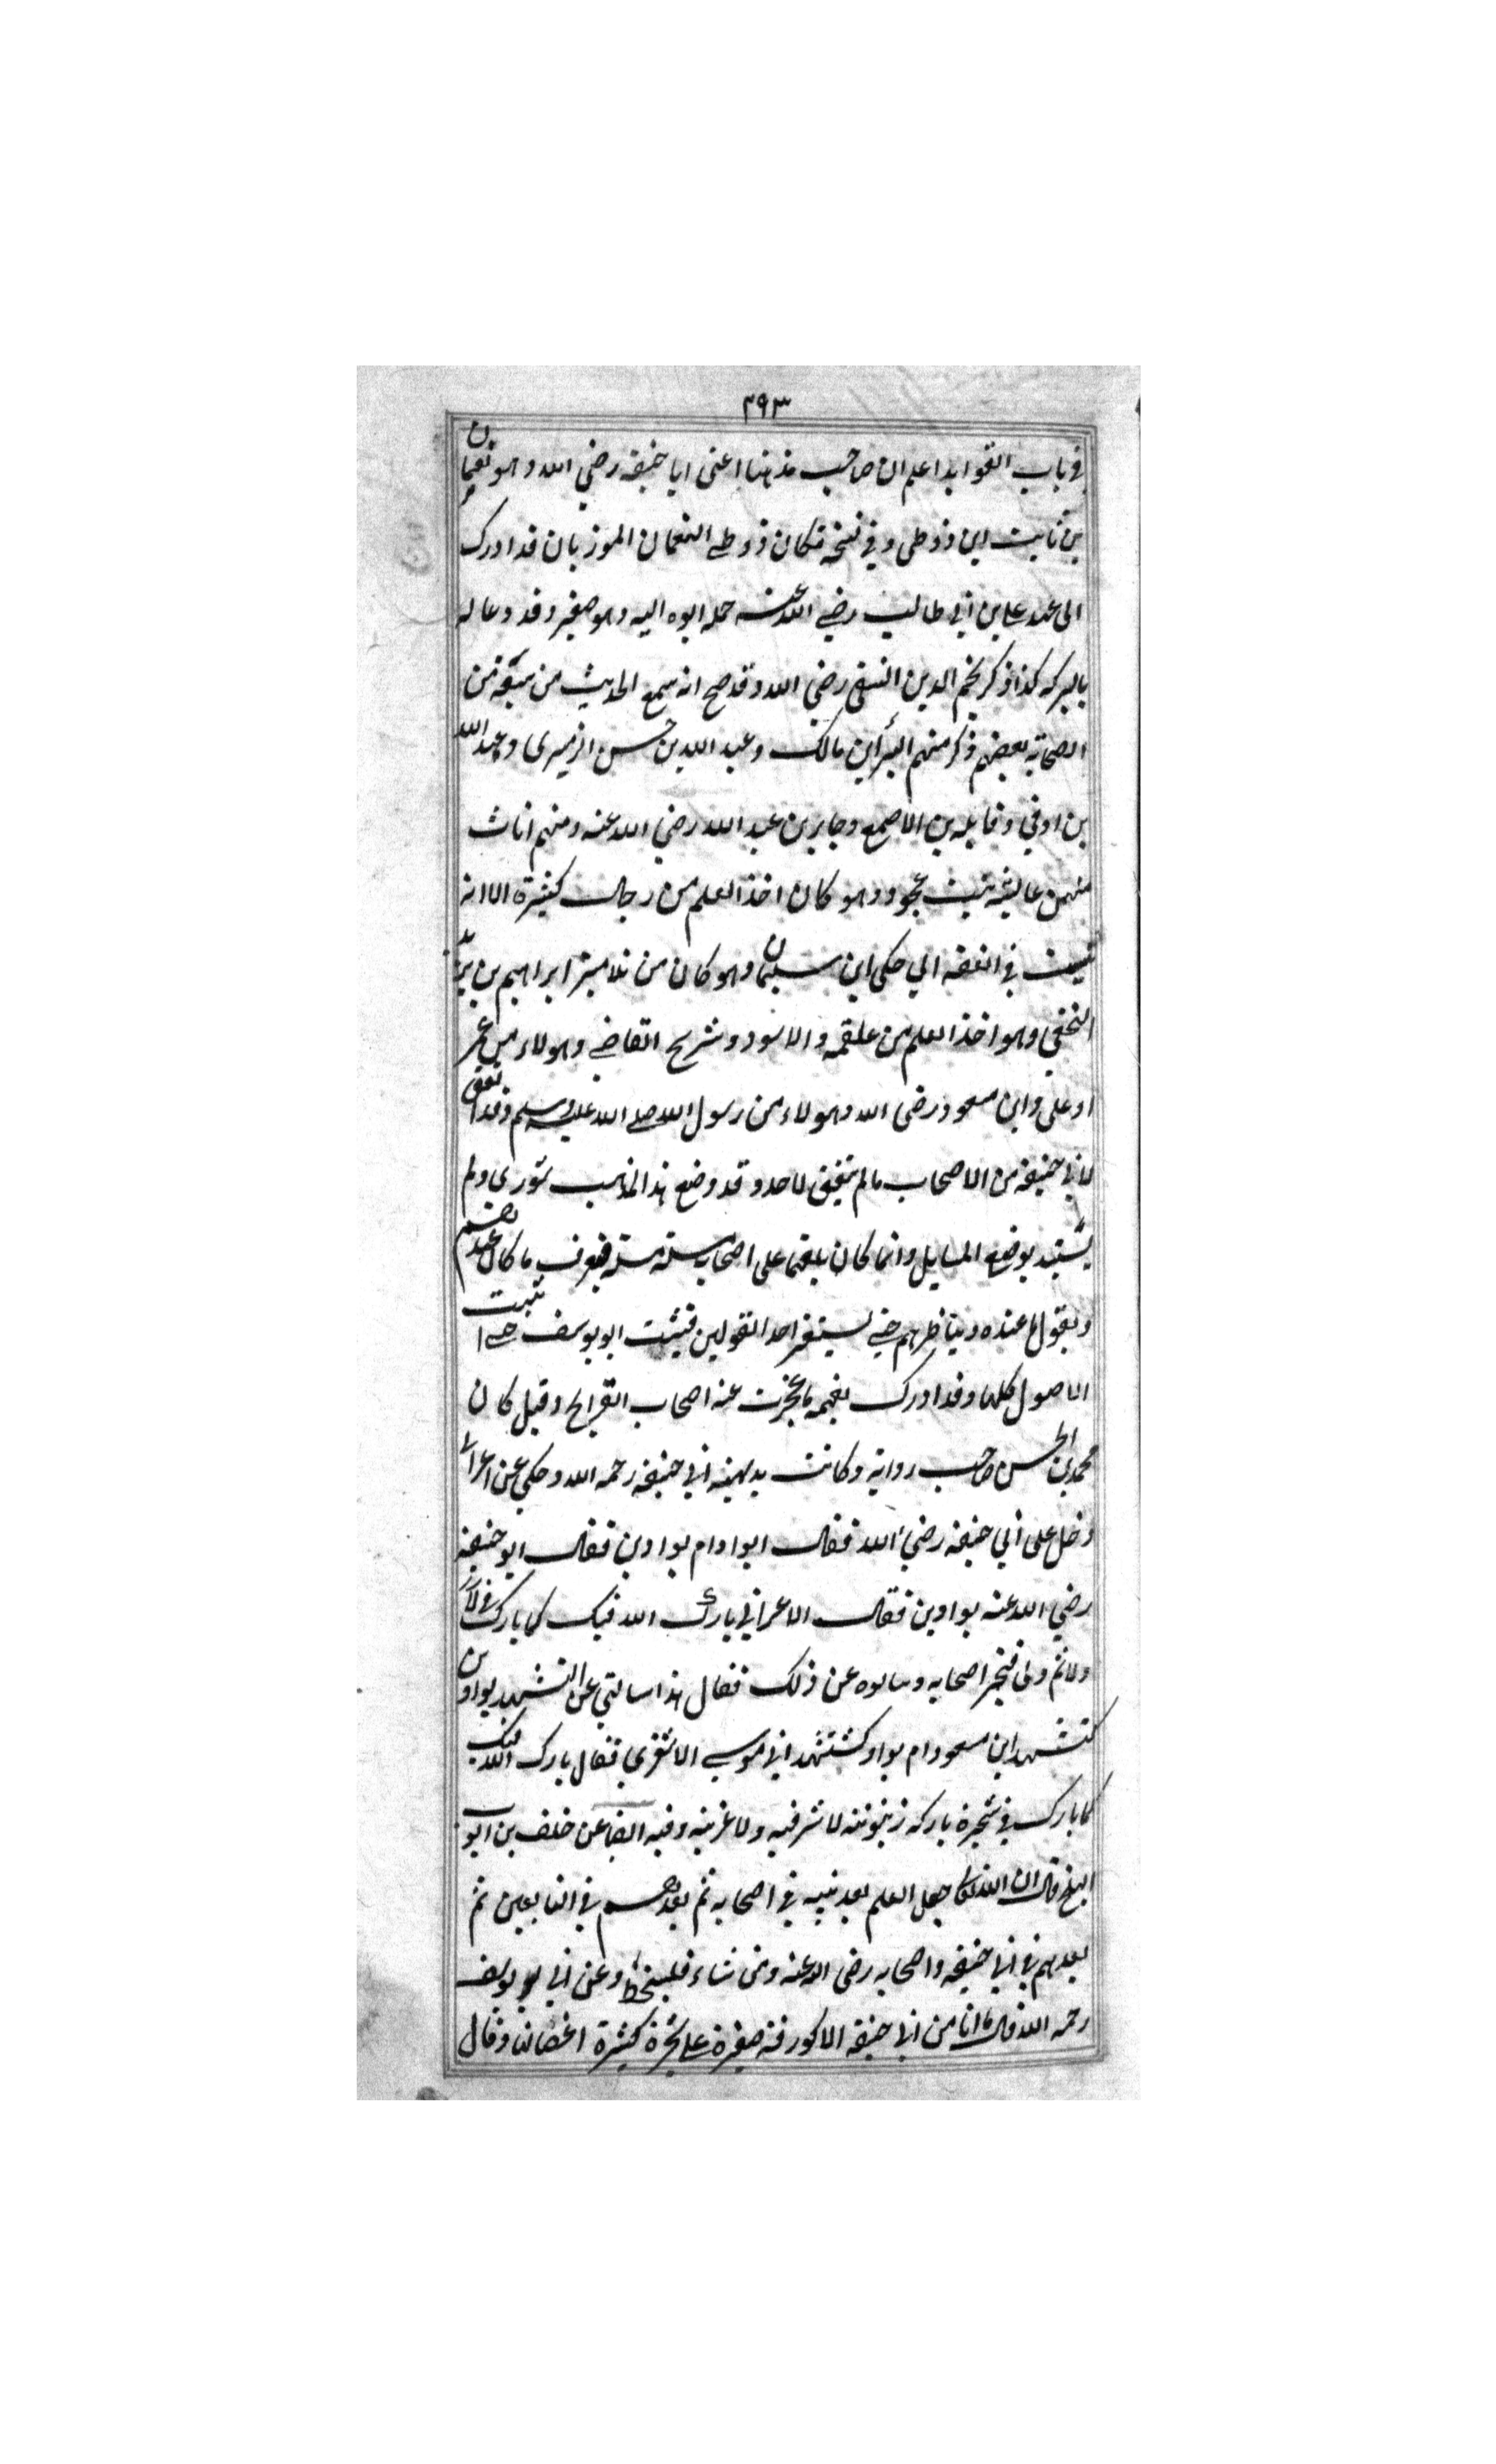 ٣٩٣
في باب الفوايد اعلم ان صاحب مذهبنا اعنى ابا حنيفة رضي الله وهو نعمان
بن ثابت ابن زوطى وفي نسخة مكان زوطى النعمان الموزبان قد ادرك
الى عهد على بن ابي طالب رضي الله عنه حمله ابوه اليه وهو صغير وقد دعا له
بالبركه كذا ذكر نجم الدين النسفى رضي الله وقد صح انه سمع الحديث من سبعة من
الصحابة بعضهم ذكر منهم البرأ بن مالك وعبد الله بن حسن الزميرى وعبد الله
بن اوفي و بن الاصمع وجابر بن عبد الله رضي الله عنه ومنهم اناث
منهن عايشه بنت عجرد وهو كان اخذ العلم من رجال كثيرة الا انه
في الفقه الي حكى ابن سليمان وهو كان من تلاميذ ابراهيم بن يزيد
النخعي وهو اخذ العلم من علقمه والاسود وشريح القاضي وهولاء من عمر
او على وابن مسعود رضى الله وهولاء من رسول الله صلى الله عليه وسلم وقد اتفق
لابي حنيفة من الاصحاب ما لم يتفق لاحد وقد وضع هذا المذهب شورى ولم
يستبد بوضع المسايل وانما كان يلقها على اصحابه مسئلة مسئلة فيعرف ما كان عندهم
ويقول ما عنده ويناظرهم حتى يستقر احد القولين فيثبت ابو يوسف حتى اثبت
الاصول كلها وقد ادرك بفهمه ما عجزت عنه اصحاب القرايح وقيل كان
محمد بن الحسن صاحب رواية وكانت بديهية ابي حنيفة رحمه الله وحكي عن اعرابي
دخل على ابي حنيفة رضي الله فقال ابواو ام بواوين فقال ابو حنيفة
رضي الله عنه بواوين فقال الاعرابي بارك الله فيك كما بارك في لا
ولا ثم ولى فتحير اصحابه وسالوه عن ذلك فقال هذا سالني عن التشهد بواوين
كتشهد ابن مسعود ام بواو كتشهد ابي موسى الاشعري فقال بارك الله فيك
كما بارك في شجرة باركه زيتونة لا شرقيه ولا غربيه وفيه ايضا عن خلف بن ايوب
البلخي قال ان الله تعالى جعل العلم بعد نبيه في اصحابه ثم بعدهم في التابعين ثم
بعدهم في ابي حنيفه واصحابه رضى الله عنه ومن شاء فليسخط وعن ابي يوسف
رحمه الله قال ما انا من ابي حنيفه الا كورقة صغيرة على شجرة كثيرة اغصانها وقال